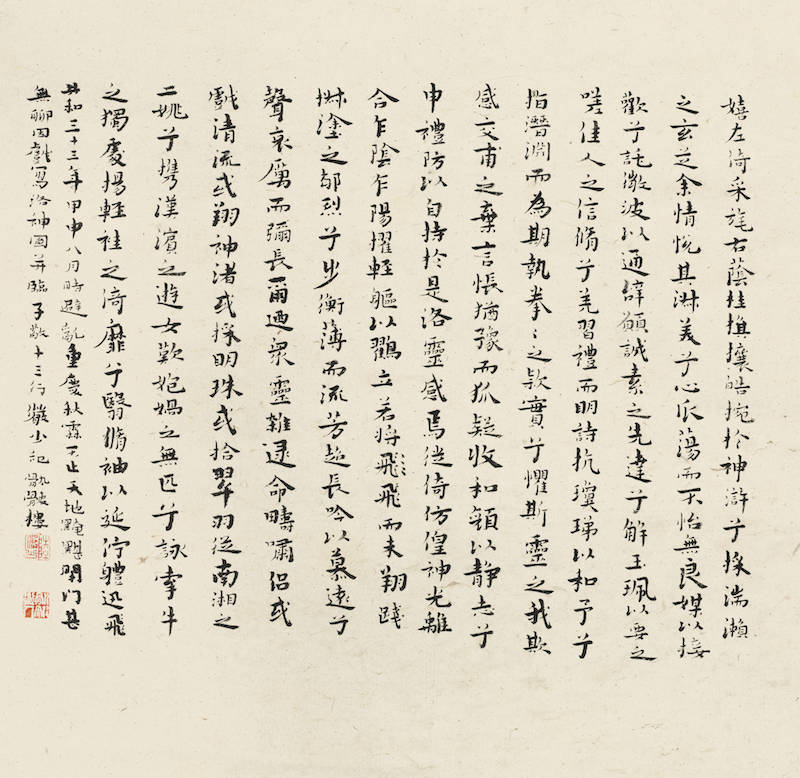 嬉左倚采旄右蔭桂旗攘皓捥於神滸兮採湍瀨
之玄芝余情悅其淋美兮心振蕩而不怡無良媒以接
歡兮託微波以通辭願誠素之先達兮解玉珮以要之
嗟佳人之信脩兮羌習禮而明詩抗瓊珶以和予兮
指潛淵而為期執拳〻之欵實兮懼斯靈之我欺
感交甫之棄言悵猶豫而狐疑收和顏以静志兮
申禮防以自持於是洛靈感焉徙倚仿偟神光離
合乍陰乍陽擢輕軀以鶴立若將飛飛而未翔踐
椒塗之郁烈兮步衡薄而流芳超長吟以慕遠兮
聲哀厲而彌長爾迺衆靈雜遝命疇嘯侶或
戲清流或翔神渚或採明珠或拾翠羽從南湘之
二姚兮攜漢濱之遊女歎媧之無匹兮詠牽牛
之獨處揚輕袿之猗靡兮翳脩袖以延佇體迅飛
共和三十三年甲申八月時避亂重慶秋霖不止天地閉門甚
無聊因戲寫洛神圖并臨子敬十三行小記骩骳樓